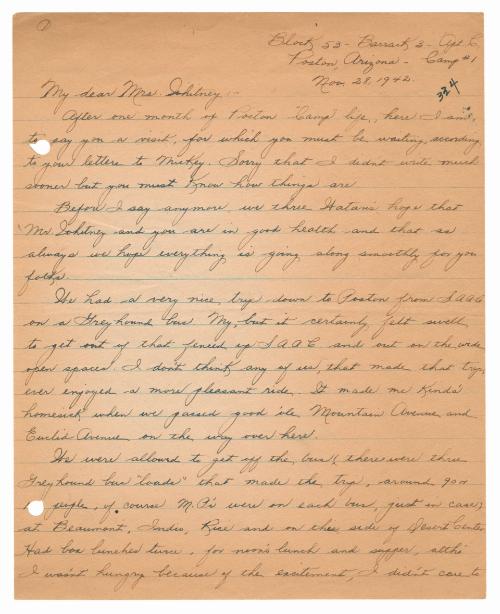 ①
Block 53 - Barrack 3 - Apt. C.
Poston, Arizona - Camp #1
Nov. 28, 1942.
334
My dear Mrs. Whitney, -
After one month of Poston "Camp" life, here I am,
to pay you a visit, for which you must be waiting, according
to your letters to Mickey. Sorry that I didn't write much
sooner but you must know how things are.
Before I say anymore, we three Hatan's hope that
Mr. Whitney and you are in good health and that as
always we hope everything is going along smoothly for you
folks.
We had a very nice trip down to Poston from S.A.A.C
on a Greyhound bus. My, but it certainly felt swell
to get out of that fenced up S.A.A.C and out on the wide
open spaces. I don't think any of us, that made that trip,
ever enjoyed a more pleasant ride. It made me kinda'
homesick when we passed good 'ole Mountain Avenue and
Euclid Avenue on the way over here.
We were allowed to get off the bus, (there were three
Greyhound bus "loads" that made the trip, around 90 or
people, of course M.P.'s were on each bus, just in case)
at Beaumont, Indio, Rice and on this side of Desert Center.
Had box lunches twice, for noon's lunch and supper, altho'
I wasn't hungry because of the excitement, I didn't care to